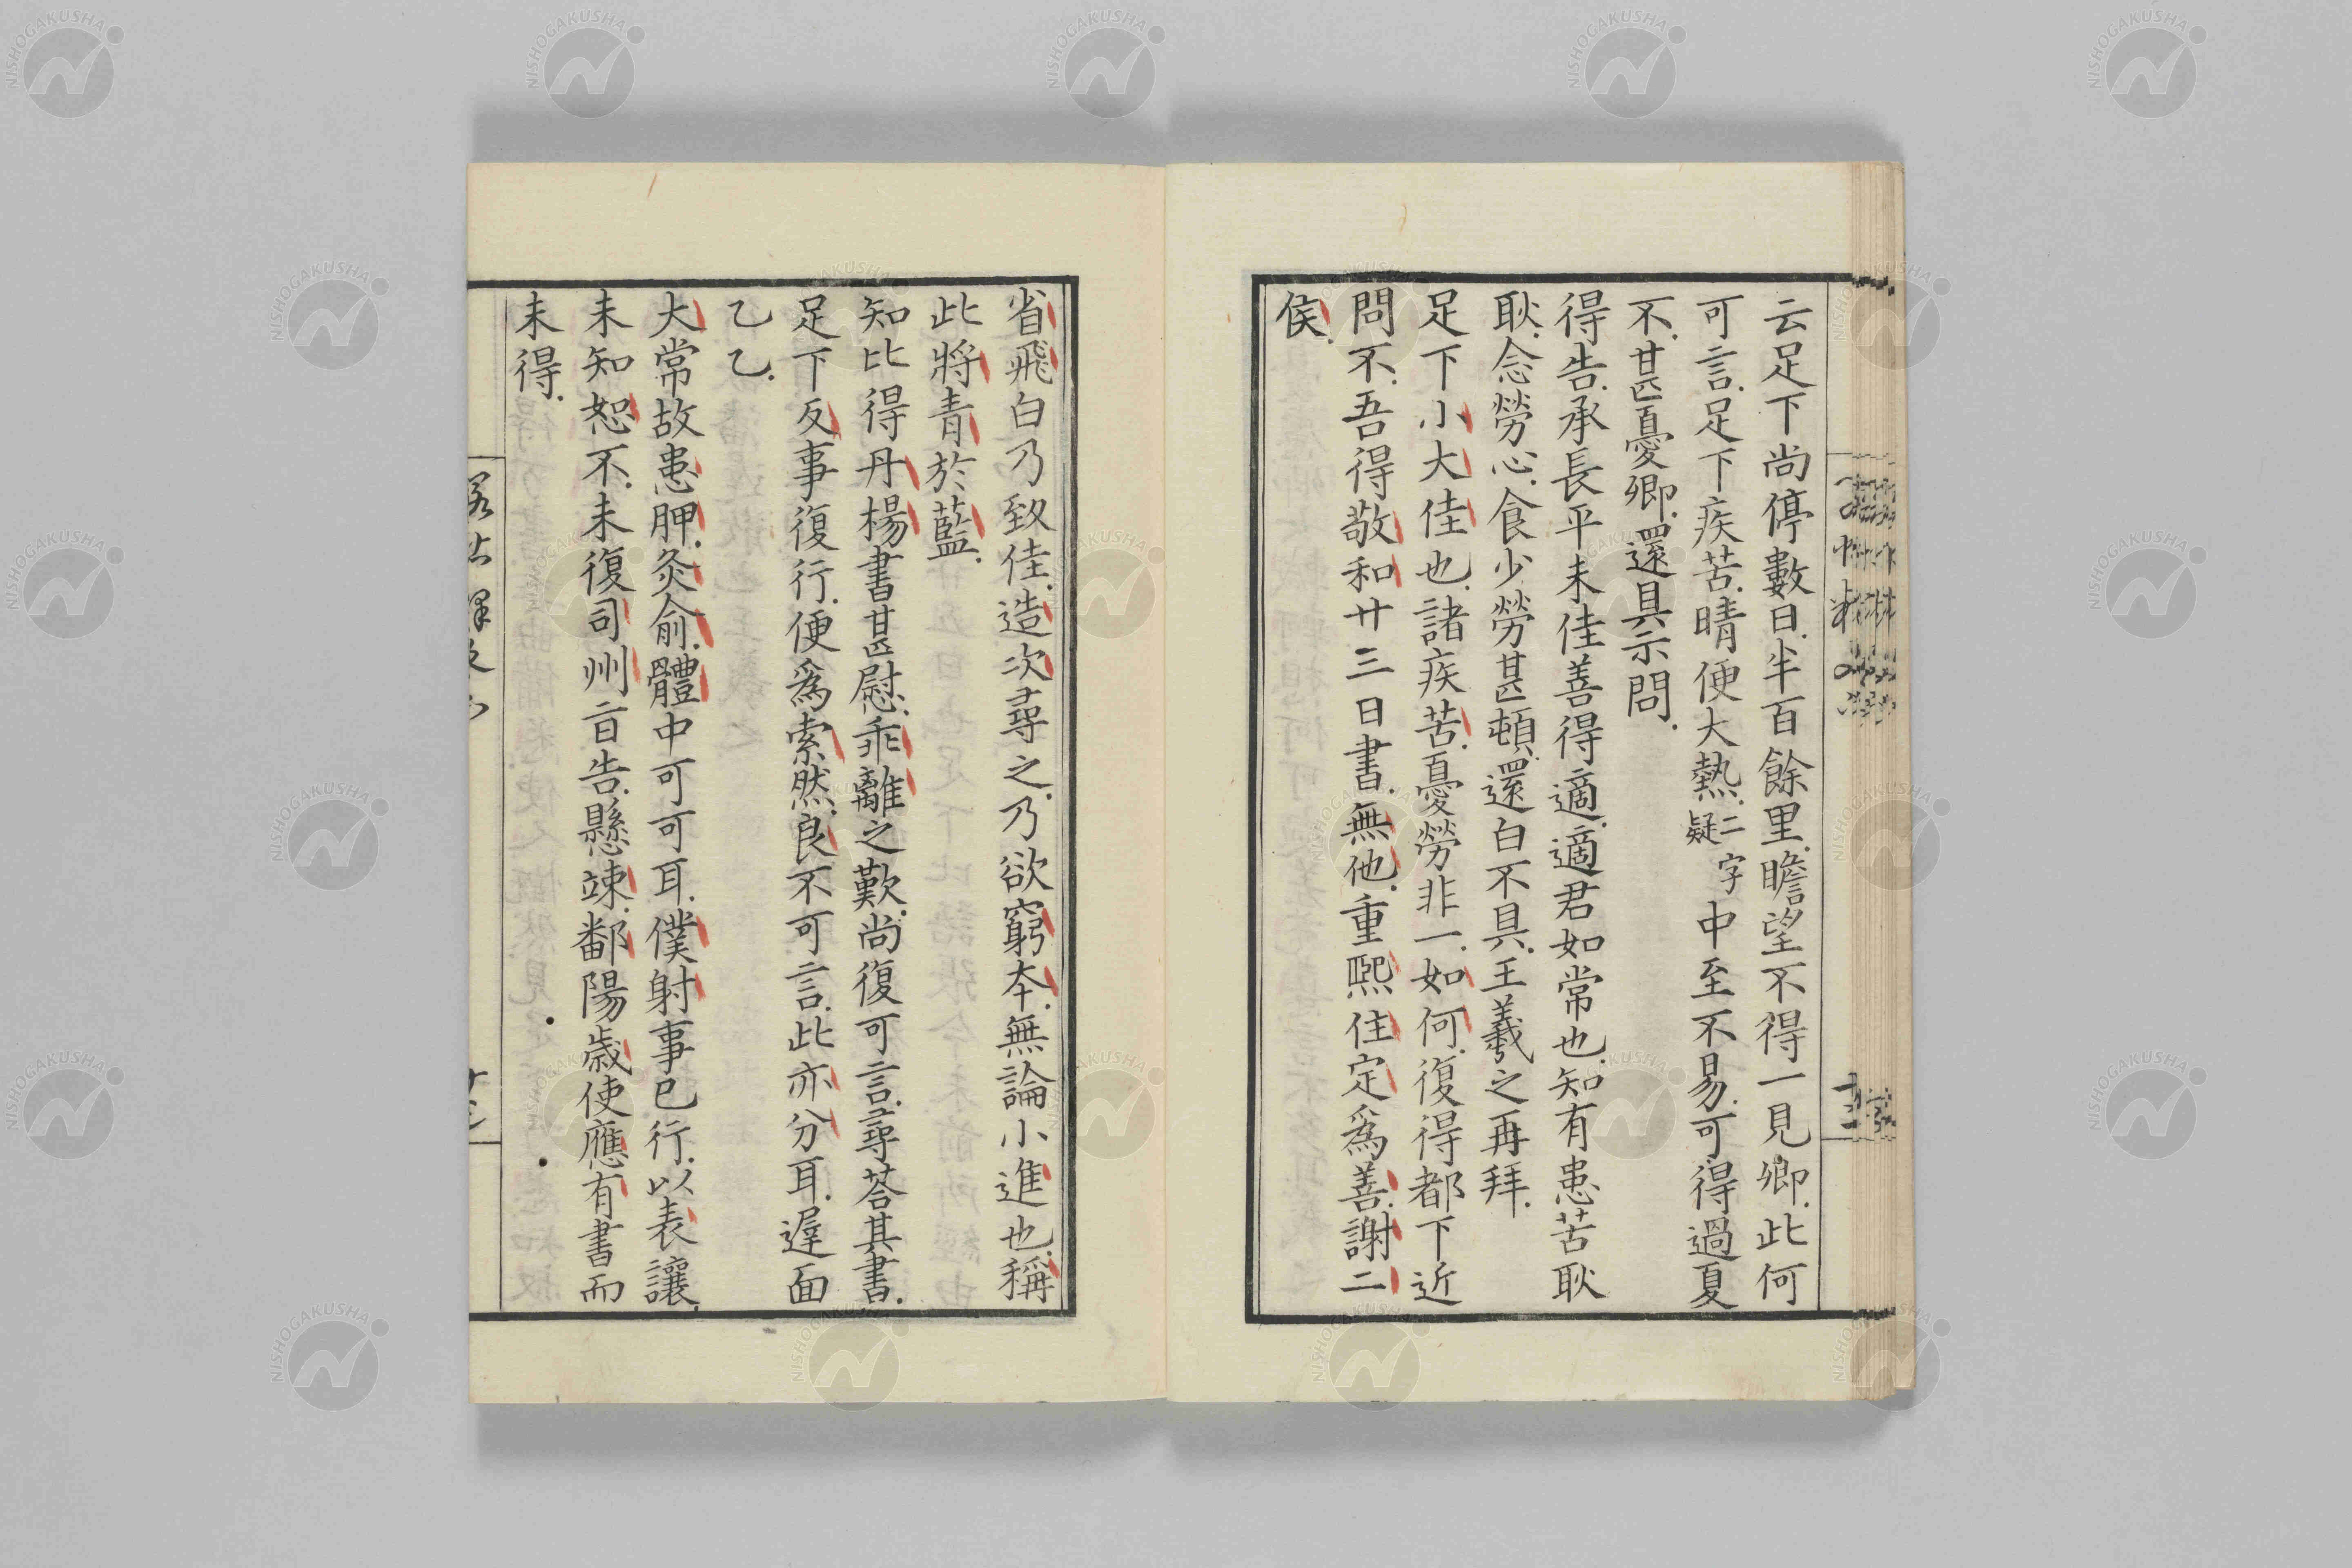 云足下尚停數日.半百餘里.瞻望不得一見卿.此何
可言.足下疾苦.晴便大熱.二字疑中至不易.可得過夏
不.甚憂卿.還具示問.
得告.承長平未佳善得適.適君如常也.知有患苦耿
耿.念勞心.食少勞甚頓.還白不具.王羲之再拜.
足下小大佳也.諸疾苦.憂勞非一.如何.復得都下近
問不.吾得敬和廿三日書.無他.重熙住定爲善.謝二
侯.
省飛白乃致佳.造次尋之.乃欲窮本.無論小進也.稱
此將青於藍.
知比得丹楊書甚慰.乖離之歎.尚復可言.尋荅其書.
足下反事復行.便爲索然.良不可言.此亦分耳.遲面
乙乙.
大常故患胛.灸俞.體中可可耳.僕射事已行.以表讓.
未知恕不.未復司州旨告.懸竦.鄱陽歲使應有書而
未得.
NISHOGAKUSHA